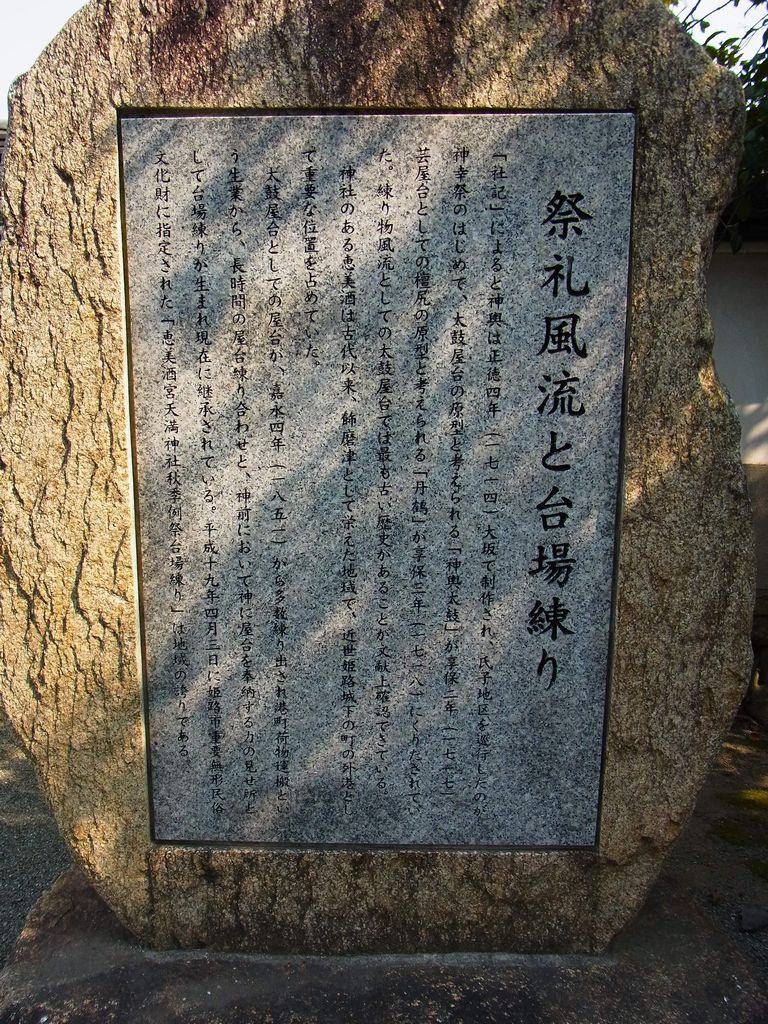 祭礼風流と台場練り
「社記」によると神輿は正徳四年（一七一四）大坂で制作され、氏子地区を巡行したのが
神幸祭のはじめで、太鼓屋台の原型と考えられる「神輿太鼓」が享保二年（一七一七）
芸屋台としての檀尻の原型と考えられる「丹鶴」が享保三年（一七一八）にくりだされてい
た。練り物風流としての太鼓屋台では最も古い歴史があることが文献上確認できている。
神社のある恵美酒は古代以来、飾磨津として栄えた地域で、近世姫路城下の町の外港とし
て重要な位置を占めていた。
太鼓屋台としての屋台が、嘉永四年（一八五一）から多数練り出され港町荷物運搬とい
う生業から、長時間の屋台練り合わせと、神前において神に屋台を奉納する力の見せ所と
して台場練りが生まれ現在に継承されている。平成十九年四月三日に姫路市重要無形民俗
文化財に指定された「恵美酒宮天満神社秋季例祭台場練り」は地域の誇りである。